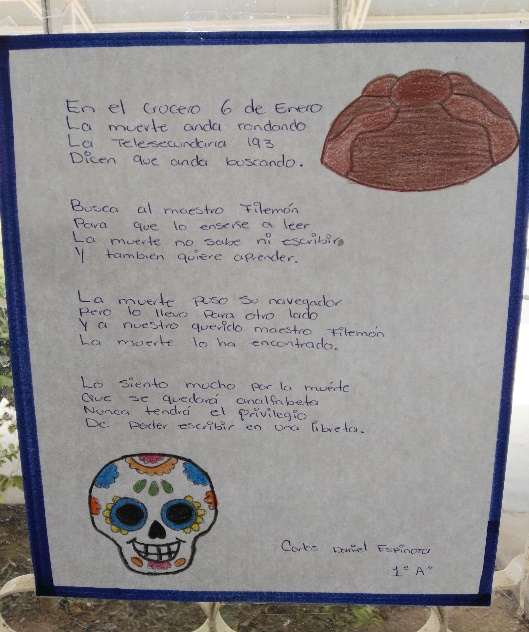 En el crucero 6 de Enero
La muerte anda rondando
La Telesecundaria 193
Dicen que anda buscando.
Busca al maestro Filemón
Para que lo enserse a leer
La muerte no sabe ni escribir
Y tambien quiere aprender.
La muerte puso su navegador
Pero lo llevo para otro lado
Y a nuestro querido maestro Filemón
La muerte lo ha encontrado.
Lo siento mucho por la muerte
Que se quedará analfabeta
Nunca tendrá el privilegio
De poder escribir en una libreta.
Carlos Daniel Espinoza
1° A"